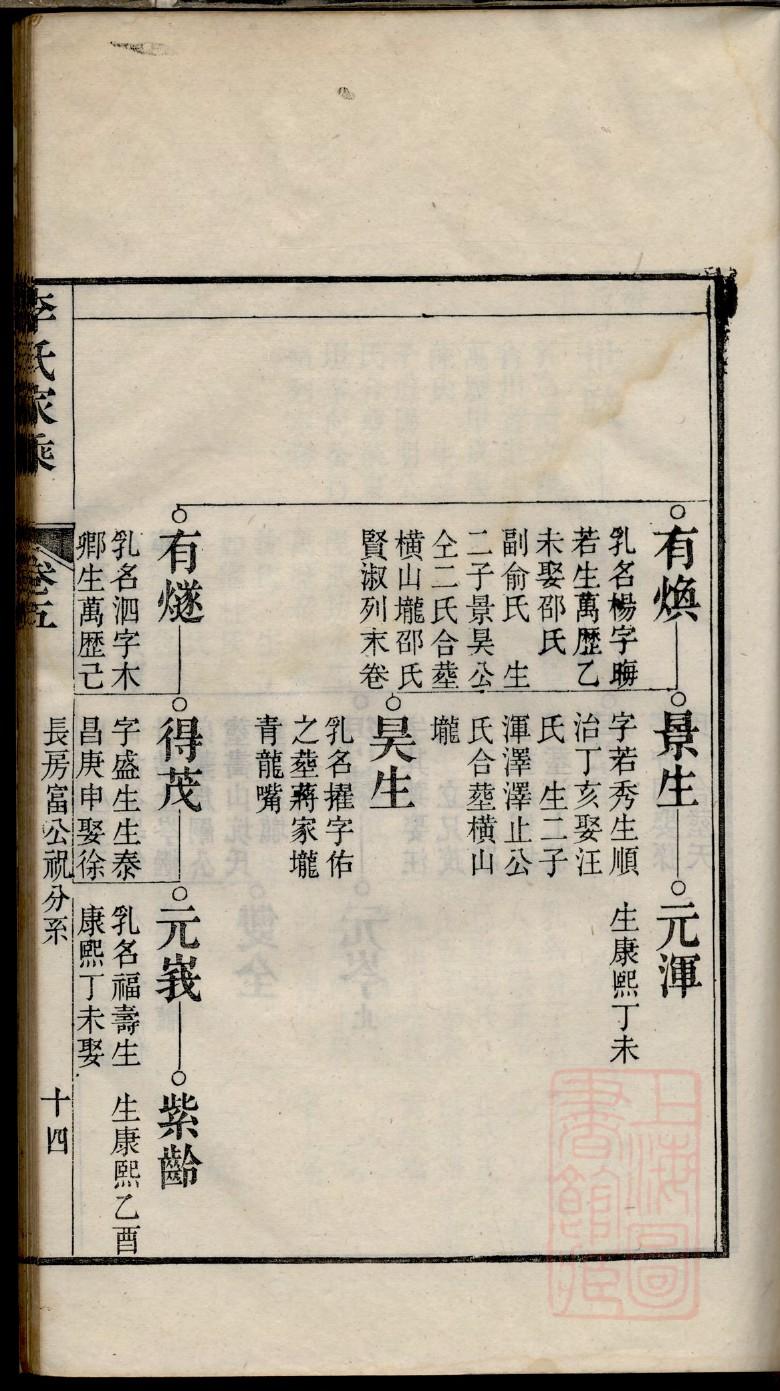 有煥
乳名楊字晦
若生萬歷乙
未娶邵氏
副俞氏 生
二子景昊公
仝二氏合塟
橫山壠邵氏
賢淑列末卷
景生
字若秀生順
治丁亥娶汪
氏 生二子
渾澤澤止公
氏合塟橫山
壠
元渾
生康熙丁未
昊生
乳名擢字佑
之塟蔣家壠
青龍嘴
有燧
乳名泗字木
卿生萬歷己
得茂
字盛生生泰
昌庚申娶徐
元峩
乳名福壽生
康熙丁未娶
紫齡
生康熙乙酉
李氏家乘
卷五
長房富公祝分系
十四
上海圖
書館藏